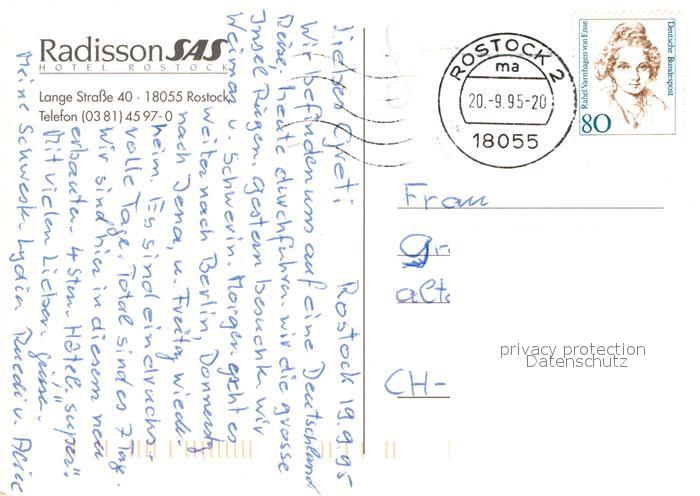 Radisson SAS
HOTEL ROSTOCK
Lange Straße 40 · 18055 Rostock
Telefon (03 81) 45 97-0
Rostock 19.9.95
Liebes Greti
Wir befinden uns auf eine Deutschland
Reise, heute durchfuhren wir die grosse
Insel Rügen, gestern besuchten wir
Weimar u. Schwerin. Morgen geht es
weiter nach Berlin, Donnerstag
nach Jena, u. Freitag wieder
heim. Es sind eindrucks-
volle Tage. Total sind es 7 Tage.
Wir sind hier in diesem neu
erbauten 4 Stern Hotel, "super"!
Mit vielen Lieben Grüssen
Meine Schwester Lydia Ruedi u. Alice
ROSTOCK 2
ma
20.-9.95-20
18055
Deutsche Bundespost
Rahel Varnhagen von Ense
80
Frau
Gr
alte
CH-
privacy protection
Datenschutz